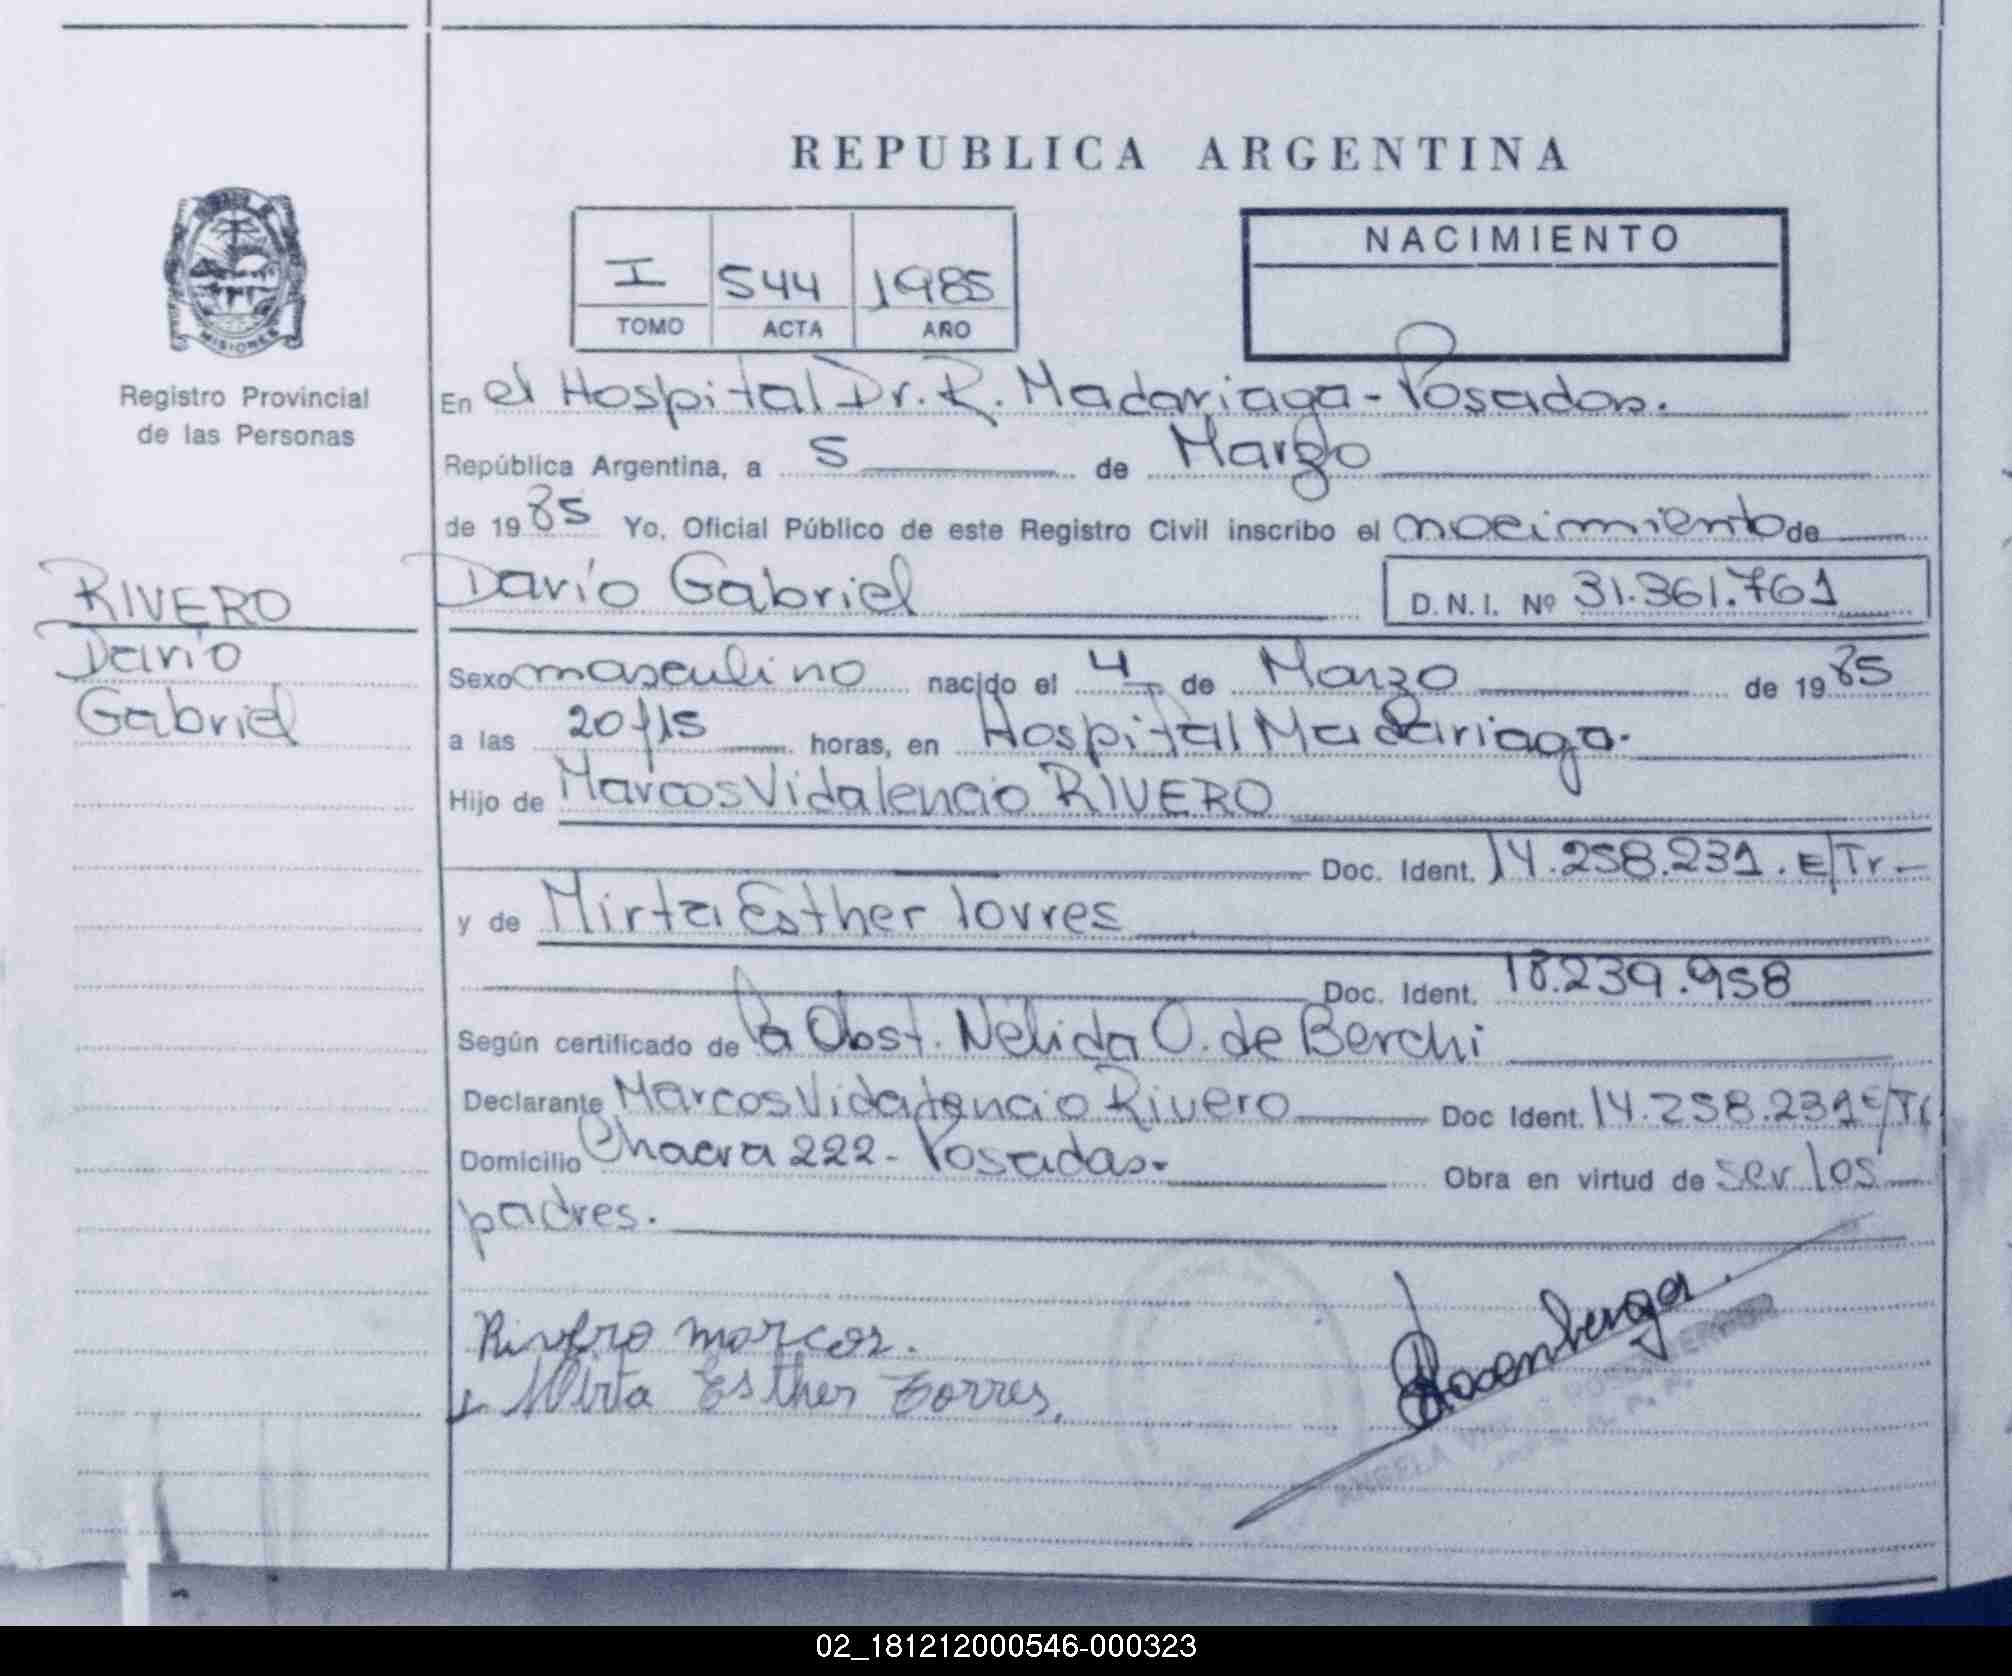 REPUBLICA ARGENTINA
MISIONES
Registro Provincial
de las Personas
I 544 1985
TOMO ACTA AÑO
NACIMIENTO
En el Hospital Dr. R. Madariaga - Posadas.
República Argentina, a 5 de Marzo
de 1985 Yo, Oficial Público de este Registro Civil inscribo el nacimiento de
RIVERO
Darío
Gabriel
Darío Gabriel D.N.I. Nº 31.361.761
Sexo masculino nacido el 4 de Marzo de 1985
a las 20/15 horas, en Hospital Madariaga.
Hijo de Marcos Vidalencio RIVERO
Doc. Ident. 14.258.231. E/Tr.-
y de Mirta Esther Torres
Doc. Ident. 18.239.958
Según certificado de la Obst. Nélida O. de Berchi
Declarante Marcos Vidalencio Rivero Doc Ident. 14.258.231 E/Tr
Domicilio Chacra 222 - Posadas. Obra en virtud de ser los
padres.
Rivero marcos.
Mirta Esther Torres.
ANGELA
02_181212000546-000323